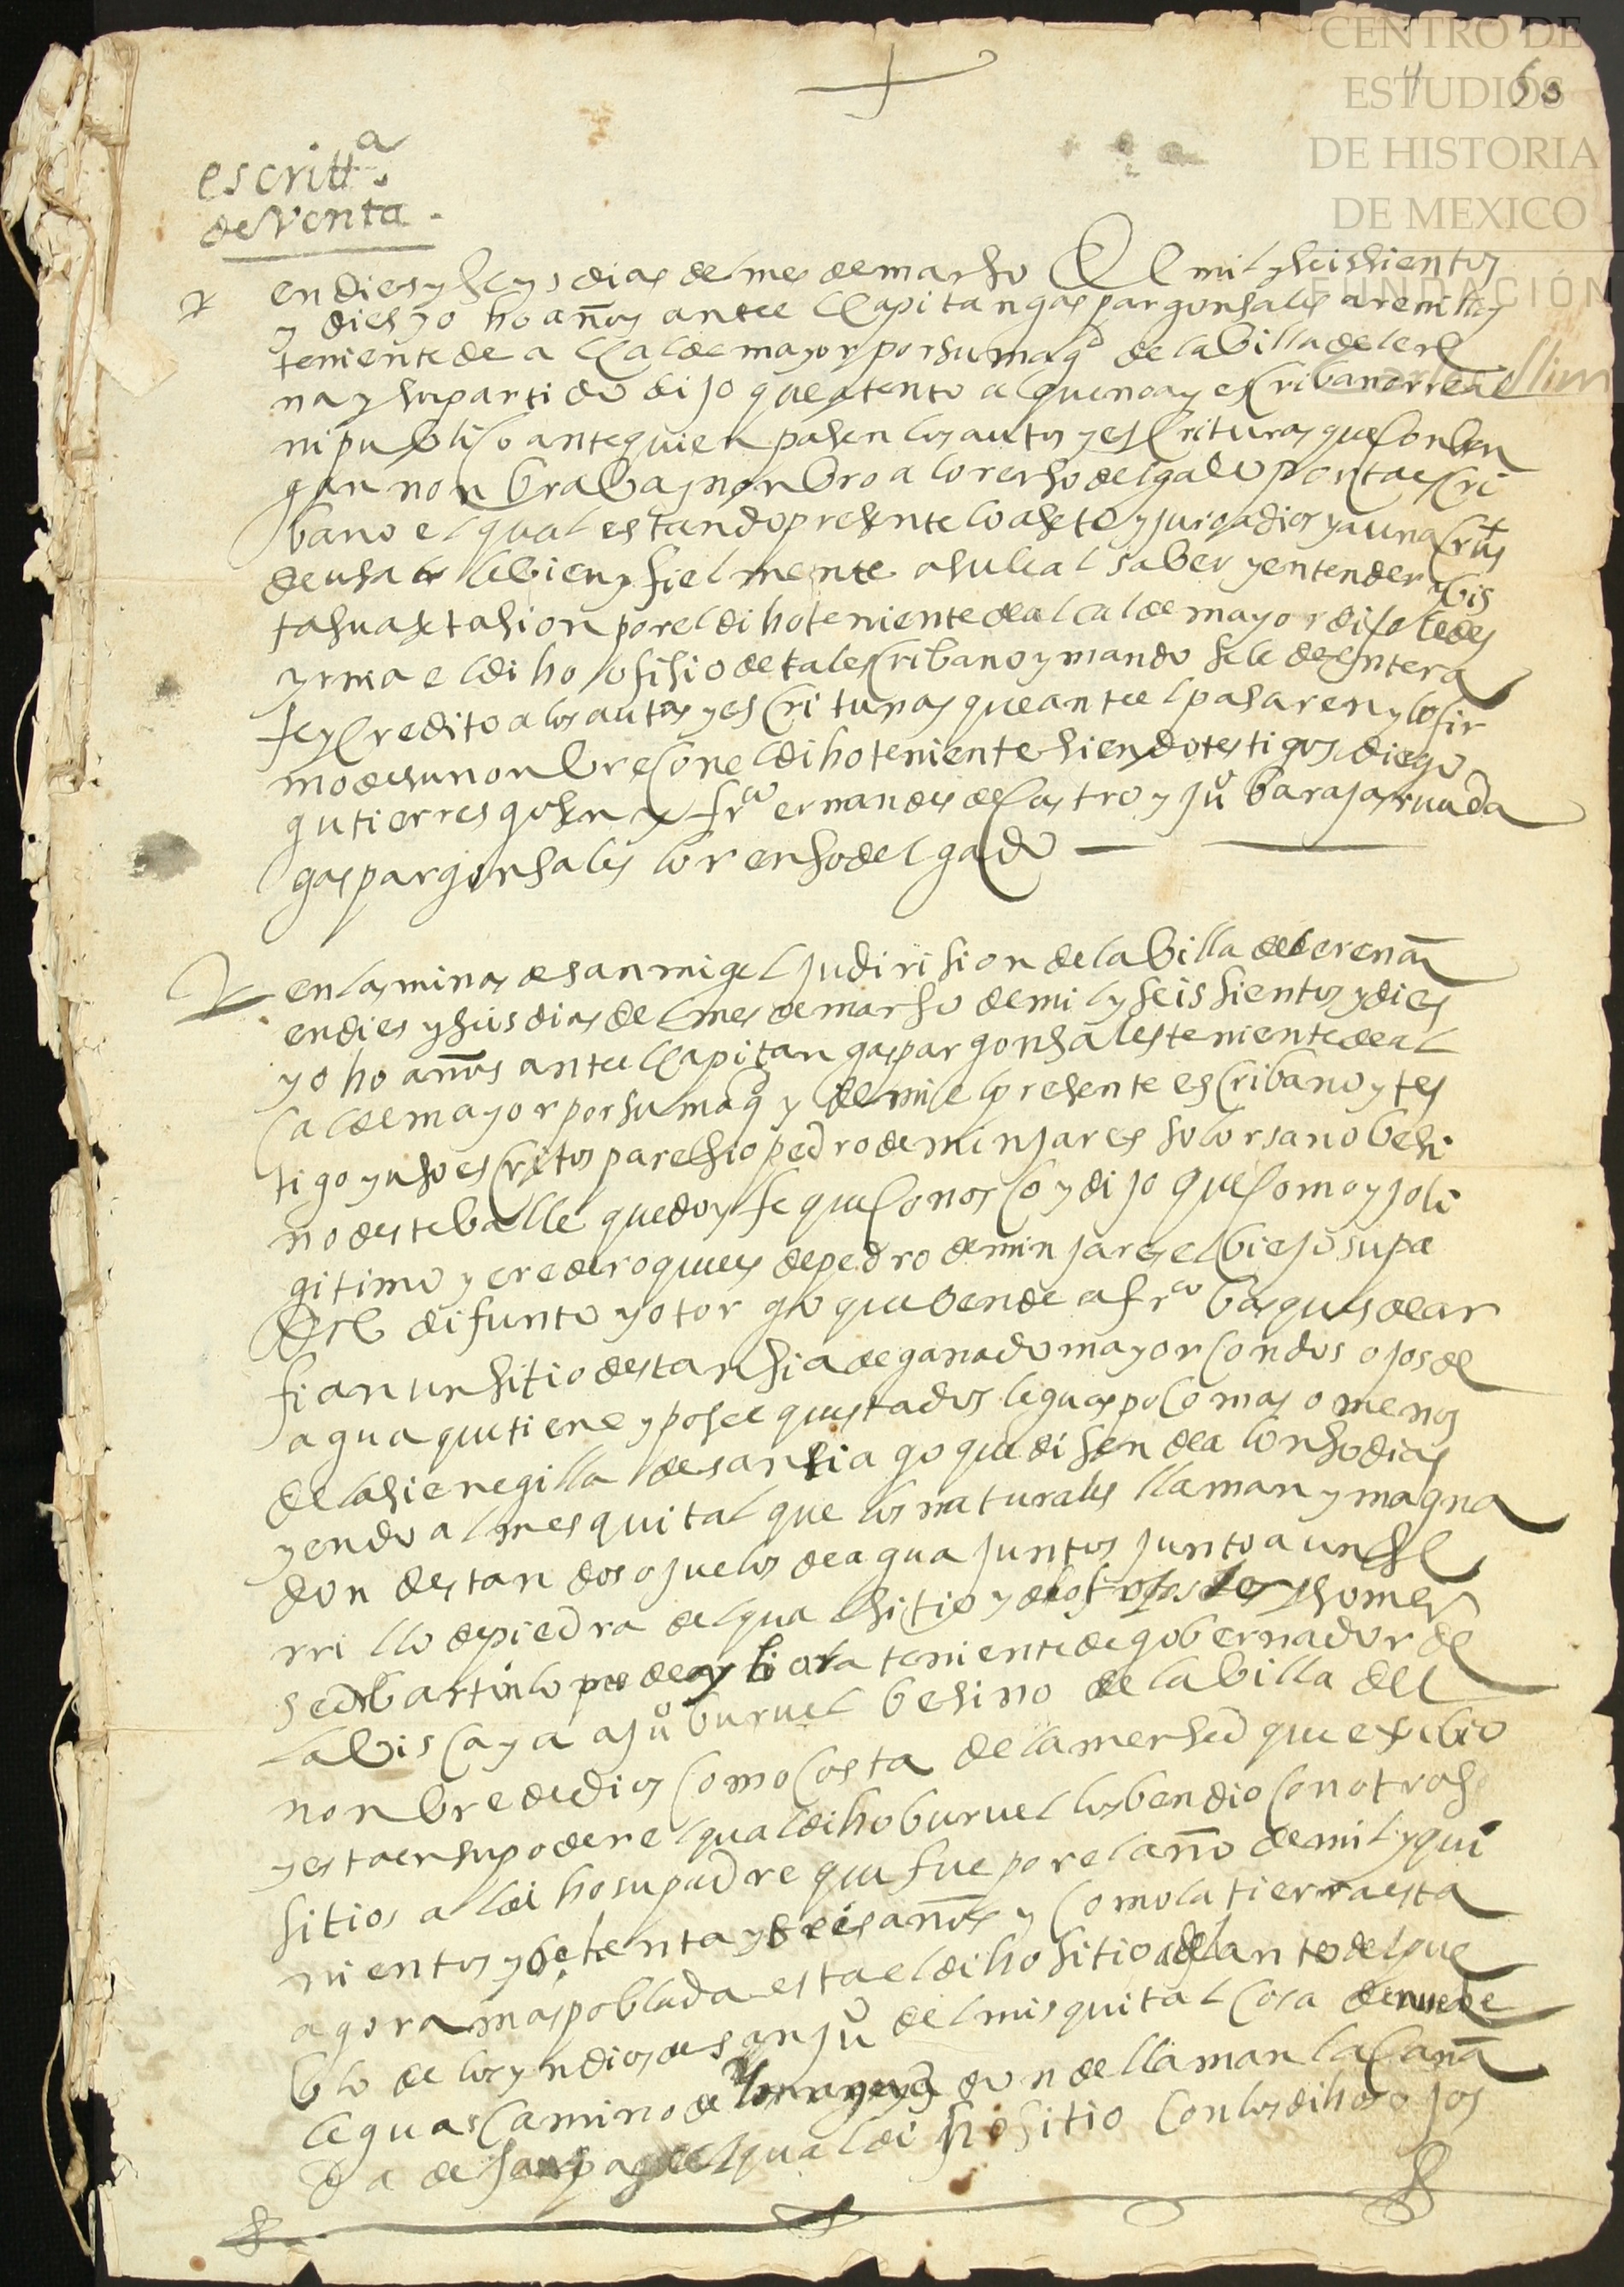 CENTRO DE
ESTUDIOS
DE HISTORIA
DE MEXICO
FUNDACIÓN
Carlos Slim
60
escritt.a
de Venta.
en dies y seys dias del mes de marso de mil y seis sientos
y dies y o ho años ante el Capitan gaspar gonsales arenillas
teniente de a lCalde mayor por su magd de la billa de lere
na y su partido dijo que atento a que no ay esCribano rreal
ni publiCo ante quien pasen los autos y esCrituras que Conben
gan nonbraba y nonbro a lorenso delgado por tal esCri
bano el qual estando presente lo aseto y juro a dios y a una Crus
de usalle bien y fielmente a su leal saber y entender y bis
ta su asetasion por el diho teniente de alcalde mayor
el diho ofisio de tal esCribano y mando se le de entera
fe y Credito a los autos y esCrituras que ante el pasaren y lo fir
mo de su nonbre Con el diho teniente siendo testigos diego
gutierres frco ernandes de Castro y juo barajas rruada
gaspar gonsales lorenso delgado
en las minas de san migel judirision de la billa de lerena
en dies y seis dias del mes de marso de mil y seis sientos y dies
y o ho años ante el Capitan gaspar gonsales teniente de al
Calde mayor por su magd y de mi el presente esCribano y tes
tigo yuso esCritos paresio pedro de minjares solorsano besi
no deste balle que doy fe que ConosCo y dijo que Como yjo li
gitimo y eredero que es de pedro de minjares el biejo su pa
dre difunto y otorgo que bende a frco basques de ar
sian un sitio destansia de ganado mayor Con dos ojos de
agua que tiene y posee questa dos leguas poCo mas o menos
de la sienegilla de santiago que disen de alonso dias
yendo al mesquital que los naturales llaman ymagna
don destan dos ojuelos de agua juntos junto a un se
rrillo de piedra del qual sitio y de otros
teniente de gobernador de
la bisCaya a juo buruel besino de la billa del
nonbre de dios Como Costa de la mersed que esibio
y esta en su poder el qual diho buruel los bendio Con otros
sitios al diho su padre que fue por el año de mil y qui
nientos y setenta y seis años y Como la tierra esta
agora mas poblada esta el diho sitio adelante del pue
blo de los yndios de san juo del misquital Cosa de
leguas Camino de donde llaman la Caña
da de el qual diho sitio Con los dihos ojos